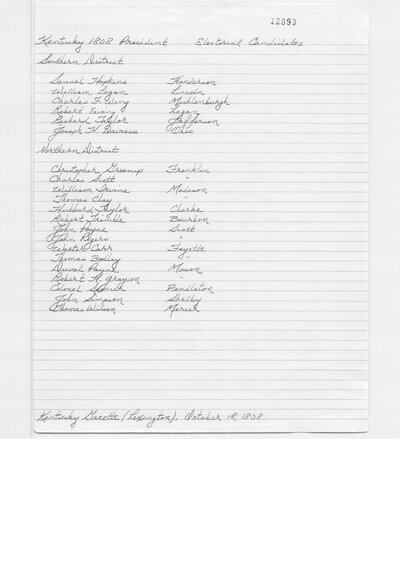 12893
Kentucky 1808 President Electorial Candidates
Southern District
Samuel Hopkins Henderson
William Logan Lincoln
Charles F. Wing Muhlenburgh
Robert Ewing Logan
Richard Taylor Jefferson
Joseph H. Daviess Ohio
Northern District
Christopher Greenup Franklin
Charles Scott "
William Irvine Madison
Thomas Clay "
Hubbard Taylor Clarke
Robert Trimble Bourbon
John Payne Scott
John Rogers "
Carr Fayette
Thomas Bodley "
Duval Payne Mason
Robert H. Grayson "
Colonel Pendleton
John Simpson Shelby
Thomas Wilson Mercer
Kentucky Gazette (Lexington). October 18, 1808.